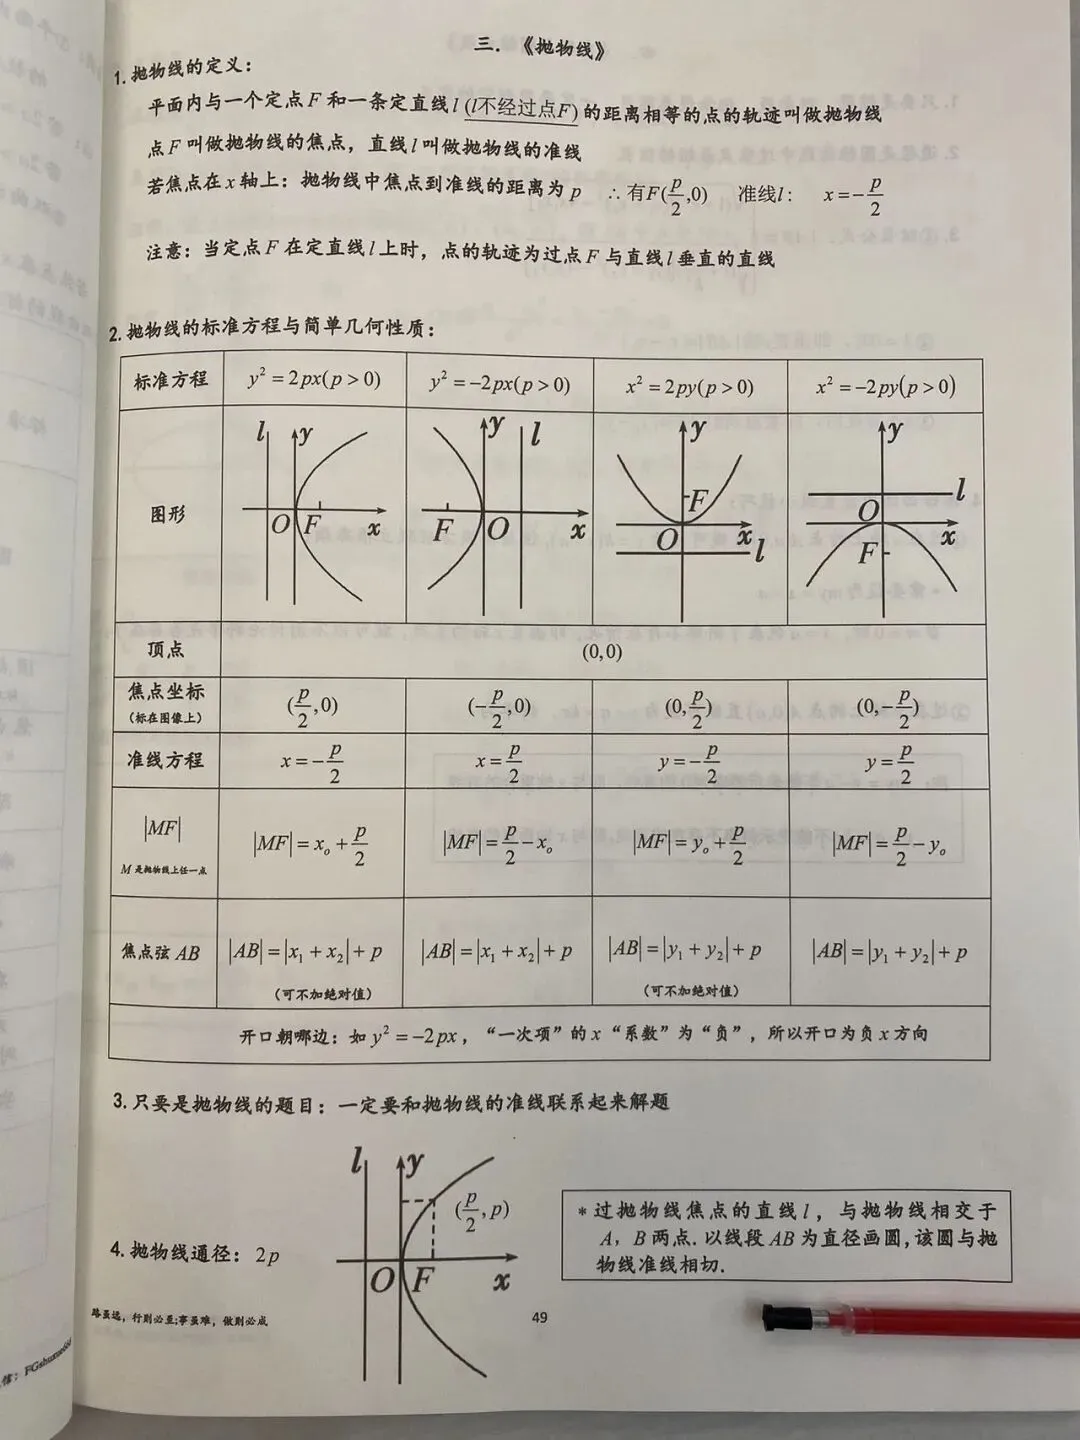 三．《抛物线》
1. 抛物线的定义：
平面内与一个定点 F 和一条定直线 l (l不经过点F) 的距离相等的点的轨迹叫做抛物线
点 F 叫做抛物线的焦点，直线 l 叫做抛物线的准线
若焦点在 x 轴上：抛物线中焦点到准线的距离为 p ∴有F(p/2,0) 准线l： x=-p/2
注意：当定点 F 在定直线 l 上时，点的轨迹为过点 F 与直线 l 垂直的直线
2. 抛物线的标准方程与简单几何性质：
标准方程 y²=2px(p>0) y²=-2px(p>0) x²=2py(p>0) x²=-2py(p>0)
图形
l y O F x
y l F O x
y F O x l
y l O x F
顶点 (0,0)
焦点坐标 (p/2,0) (-p/2,0) (0,p/2) (0,-p/2)
(标在图像上)
准线方程 x=-p/2 x=p/2 y=-p/2 y=p/2
|MF| |MF|=x₀+p/2 |MF|=p/2-x₀ |MF|=y₀+p/2 |MF|=p/2-y₀
M 是抛物线上任一点
焦点弦 AB |AB|=|x₁+x₂|+p |AB|=|x₁+x₂|+p |AB|=|y₁+y₂|+p |AB|=|y₁+y₂|+p
(可不加绝对值) (可不加绝对值)
开口朝哪边：如 y²=-2px，“一次项”的 x “系数”为“负”，所以开口为负 x 方向
3. 只要是抛物线的题目：一定要和抛物线的准线联系起来解题
l y
(p/2,p)
4. 抛物线通径：2p
O F x
* 过抛物线焦点的直线 l，与抛物线相交于
A，B 两点. 以线段 AB 为直径画圆, 该圆与抛
物线准线相切.
路虽远，行则必至;事虽难，做则必成
49